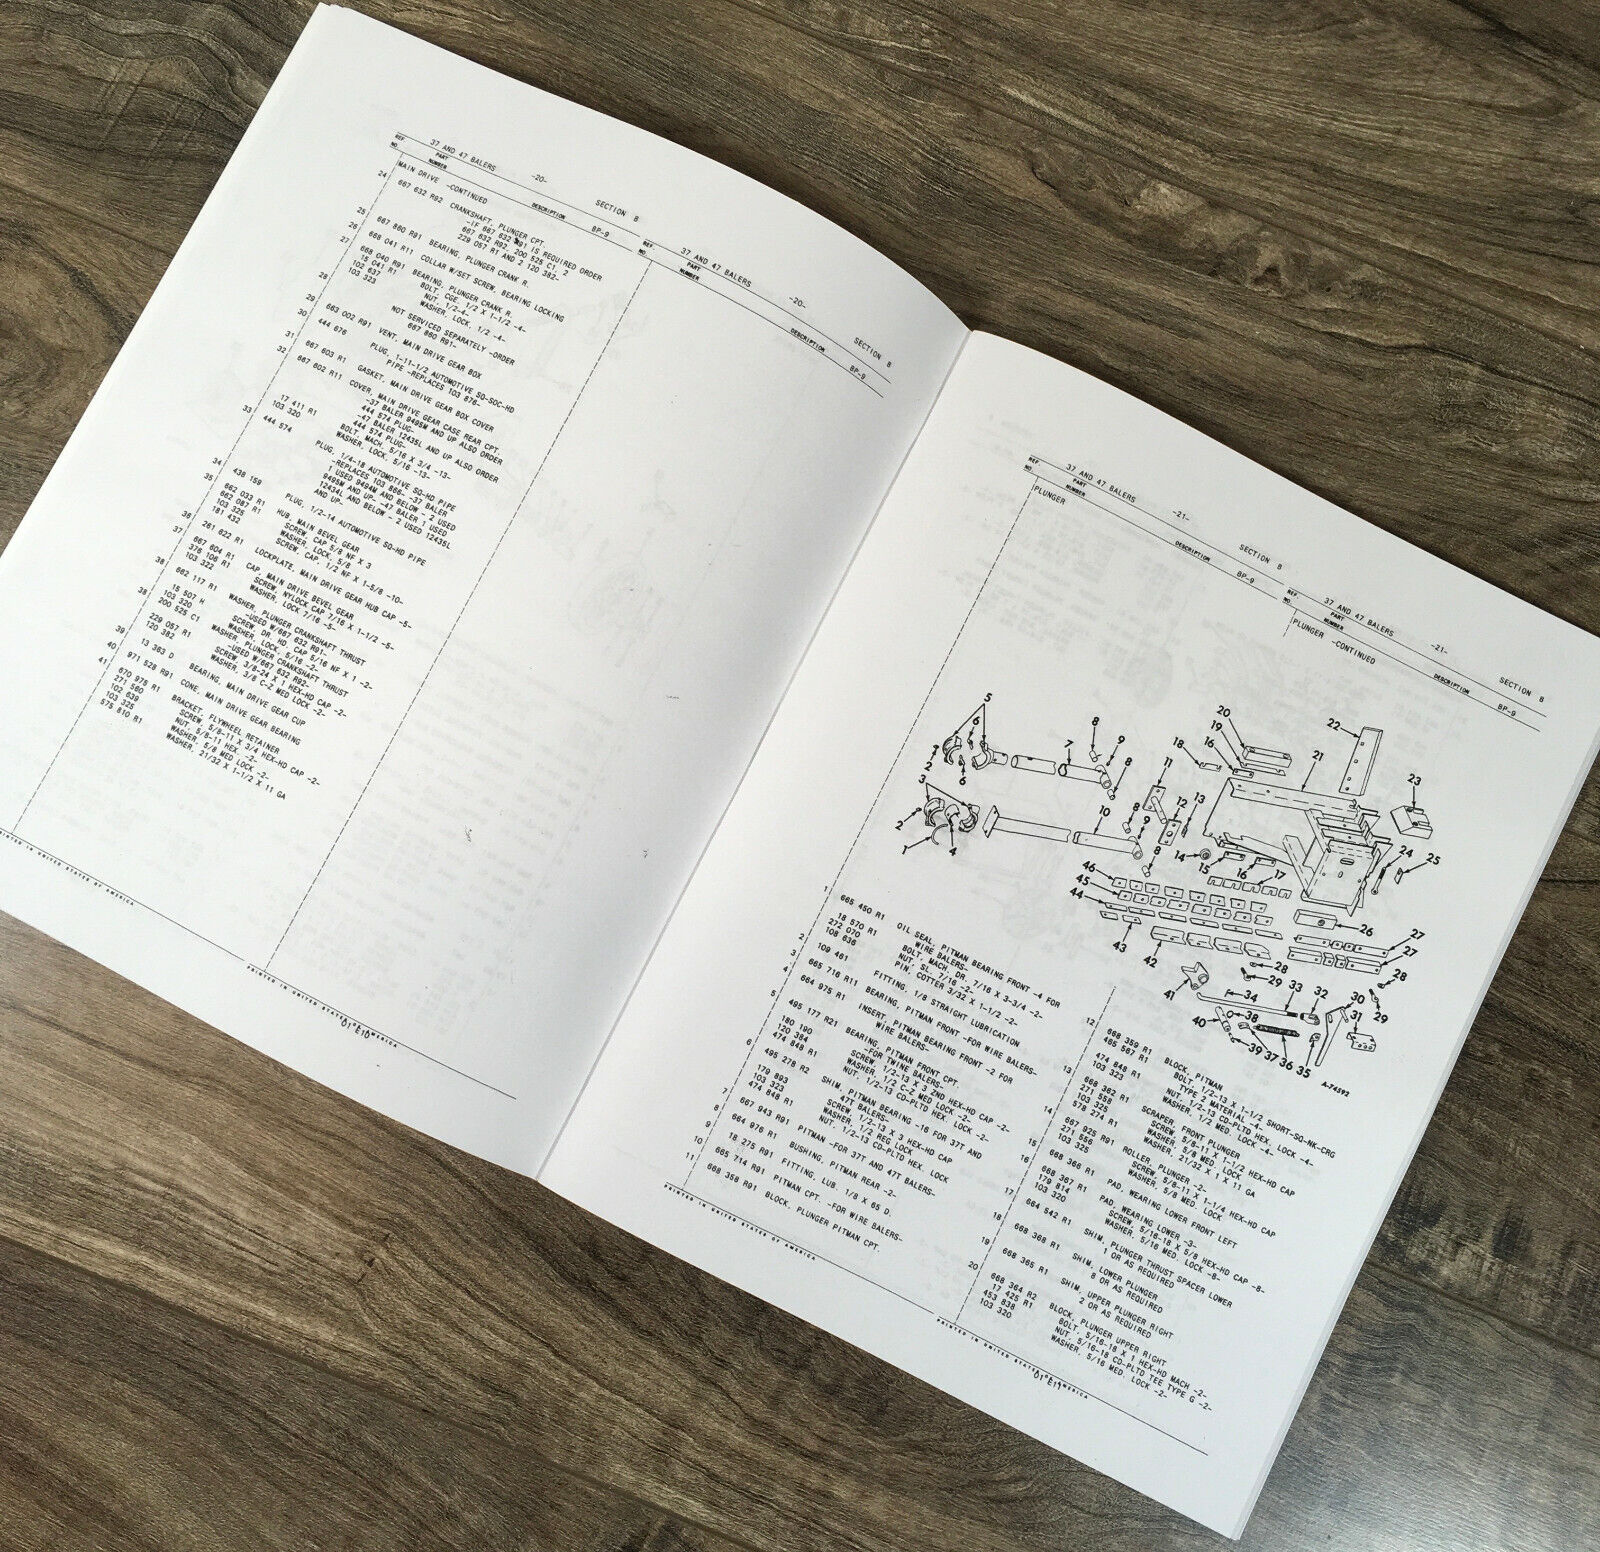 37 AND 47 BALERS -20- SECTION 8
REF. NO. PART NUMBER DESCRIPTION BP-9
MAIN DRIVE -CONTINUED
24 667 632 R92 CRANKSHAFT, PLUNGER CPT.
-IF 667 632 R91 IS REQUIRED ORDER
667 632 R92, 200 525 C1, 2
229 057 R1 AND 2 120 382-
25 667 860 R91 BEARING, PLUNGER CRANK R.
26 668 041 R11 COLLAR W/SET SCREW, BEARING LOCKING
27 668 040 R91 BEARING, PLUNGER CRANK R.
15 041 R1 BOLT, CGE, 1/2 X 1-1/2 -4-
102 637 NUT, 1/2-4-
103 323 WASHER, LOCK, 1/2 -4-
28 NOT SERVICED SEPARATELY -ORDER
667 860 R91-
29 663 002 R91 VENT, MAIN DRIVE GEAR BOX
30 444 676 PLUG, 1-11-1/2 AUTOMOTIVE SQ-SOC-HD
PIPE -REPLACES 103 876-
31 667 603 R1 GASKET, MAIN DRIVE GEAR BOX COVER
32 667 602 R11 COVER, MAIN DRIVE GEAR CASE REAR CPT.
-37 BALER 9495M AND UP ALSO ORDER
444 574 PLUG-
-47 BALER 12435L AND UP ALSO ORDER
444 574 PLUG-
17 411 R1 BOLT, MACH, 5/16 X 3/4 -13-
103 320 WASHER, LOCK, 5/16 -13-
33 444 574 PLUG, 1/4-18 AUTOMOTIVE SQ-HD PIPE
-REPLACES 103 866- -37 BALER
1 USED 9494M AND BELOW - 2 USED
9495M AND UP- -47 BALER 1 USED
12434L AND BELOW - 2 USED 12435L
AND UP-
34 438 159 PLUG, 1/2-14 AUTOMOTIVE SQ-HD PIPE
35 662 033 R1 HUB, MAIN BEVEL GEAR
662 087 R1 SCREW, CAP 5/8 NF X 3
103 325 WASHER, LOCK, 5/8
181 432 SCREW, CAP, 1/2 NF X 1-5/8 -10-
36 261 622 R1 LOCKPLATE, MAIN DRIVE GEAR HUB CAP -5-
37 667 604 R1 CAP, MAIN DRIVE BEVEL GEAR
376 106 R1 SCREW, NYLOCK CAP 7/16 X 1-1/2 -5-
103 322 WASHER, LOCK 7/16 -5-
38 662 117 R1 WASHER, PLUNGER CRANKSHAFT THRUST
-USED W/667 632 R91-
15 507 H SCREW, DR. HD. CAP 5/16 NF X 1 -2-
103 320 WASHER, LOCK, 5/16 -2-
38 200 525 C1 WASHER, PLUNGER CRANKSHAFT THRUST
-USED W/667 632 R92-
229 057 R1 SCREW, 3/8-24 X 1 HEX-HD CAP -2-
120 382 WASHER, 3/8 C-Z MED LOCK -2-
39 13 363 D BEARING, MAIN DRIVE GEAR CUP
40 971 528 R91 CONE, MAIN DRIVE GEAR BEARING
41 670 975 R1 BRACKET, FLYWHEEL RETAINER
271 560 SCREW, 5/8-11 X 3/4 HEX-HD CAP -2-
102 639 NUT, 5/8-11 HEX. -2-
103 325 WASHER, 5/8 MED LOCK -2-
575 810 R1 WASHER, 21/32 X 1-1/2 X 11 GA
PRINTED IN UNITED STATES OF AMERICA
37 AND 47 BALERS -20- SECTION 8
REF. NO. PART NUMBER DESCRIPTION BP-9
PRINTED IN UNITED STATES OF AMERICA
01 E10
37 AND 47 BALERS -21- SECTION 8
REF. NO. PART NUMBER DESCRIPTION BP-9
PLUNGER
37 AND 47 BALERS -21- SECTION 8
REF. NO. PART NUMBER DESCRIPTION BP-9
PLUNGER -CONTINUED
5 8 20 22
6 9 19 16 21 23
2 6 7 8 18 11
3 8 12 13
2 10 9 24 25
1 4 8 14 15 16 17
46 45 44 26
43 42 27 27
28 29 28
41 34 33 32 30 29
40 38 31
39 37 36 35
A-74592
1 665 450 R1 OIL SEAL, PITMAN BEARING FRONT -4 FOR
WIRE BALERS-
18 570 R1 BOLT, MACH, DR, 7/16 X 3-3/4 -2-
272 070 NUT, SL, 7/16 -2-
108 636 PIN, COTTER 3/32 X 1-1/2 -2-
2 109 461 FITTING, 1/8 STRAIGHT LUBRICATION
3 665 716 R11 BEARING, PITMAN FRONT -FOR WIRE BALERS-
4 664 975 R1 INSERT, PITMAN BEARING FRONT -2 FOR
WIRE BALERS-
5 495 177 R21 BEARING, PITMAN FRONT CPT.
-FOR TWINE BALERS-
180 190 SCREW, 1/2-13 X 3 2ND HEX-HD CAP -2-
120 384 WASHER, 1/2 C-Z MED LOCK -2-
474 848 R1 NUT, 1/2-13 CD-PLTD HEX. LOCK -2-
6 495 278 R2 SHIM, PITMAN BEARING -16 FOR 37T AND
47T BALERS-
179 893 SCREW, 1/2-13 X 3 HEX-HD CAP
103 323 WASHER, 1/2 REG LOCK
474 848 R1 NUT, 1/2-13 CD-PLTD HEX. LOCK
7 667 943 R91 PITMAN -FOR 37T AND 47T BALERS-
8 664 976 R1 BUSHING, PITMAN REAR -2-
9 18 275 R91 FITTING, LUB. 1/8 X 65 D.
10 665 714 R91 PITMAN CPT. -FOR WIRE BALERS-
11 668 358 R91 BLOCK, PLUNGER PITMAN CPT.
PRINTED IN UNITED STATES OF AMERICA
12 668 359 R1 BLOCK, PITMAN
485 567 R1 BOLT, 1/2-13 X 1-1/2 SHORT-SQ-NK-CRG
TYPE 2 MATERIAL -4-
474 848 R1 NUT, 1/2-13 CD-PLTD HEX. LOCK -4-
103 323 WASHER, 1/2 MED. LOCK -4-
13 668 362 R1 SCRAPER, FRONT PLUNGER
271 558 SCREW 5/8-11 X 1-1/2 HEX-HD CAP
103 325 WASHER, 5/8 MED. LOCK
578 274 R1 WASHER, 21/32 X 1 X 11 GA
14 667 925 R91 ROLLER, PLUNGER -2-
271 556 SCREW, 5/8-11 X 1-1/4 HEX-HD CAP
103 325 WASHER, 5/8 MED. LOCK
15 668 368 R1 PAD, WEARING LOWER FRONT LEFT
16 668 367 R1 PAD, WEARING LOWER -3-
179 814 SCREW, 5/16-18 X 5/8 HEX-HD CAP -8-
103 320 WASHER, 5/16 MED. LOCK -8-
17 664 542 R1 SHIM, PLUNGER THRUST SPACER LOWER
1 OR AS REQUIRED
18 668 368 R1 SHIM, LOWER PLUNGER
8 OR AS REQUIRED
19 668 365 R1 SHIM, UPPER PLUNGER RIGHT
2 OR AS REQUIRED
20 668 364 R2 BLOCK, PLUNGER UPPER RIGHT
17 425 R1 BOLT, 5/16-18 X 1 HEX-HD MACH -2-
453 838 NUT, 5/16-18 CD-PLTD TEE TYPE G -2-
103 320 WASHER, 5/16 MED. LOCK -2-
PRINTED IN UNITED STATES OF AMERICA
01 E11